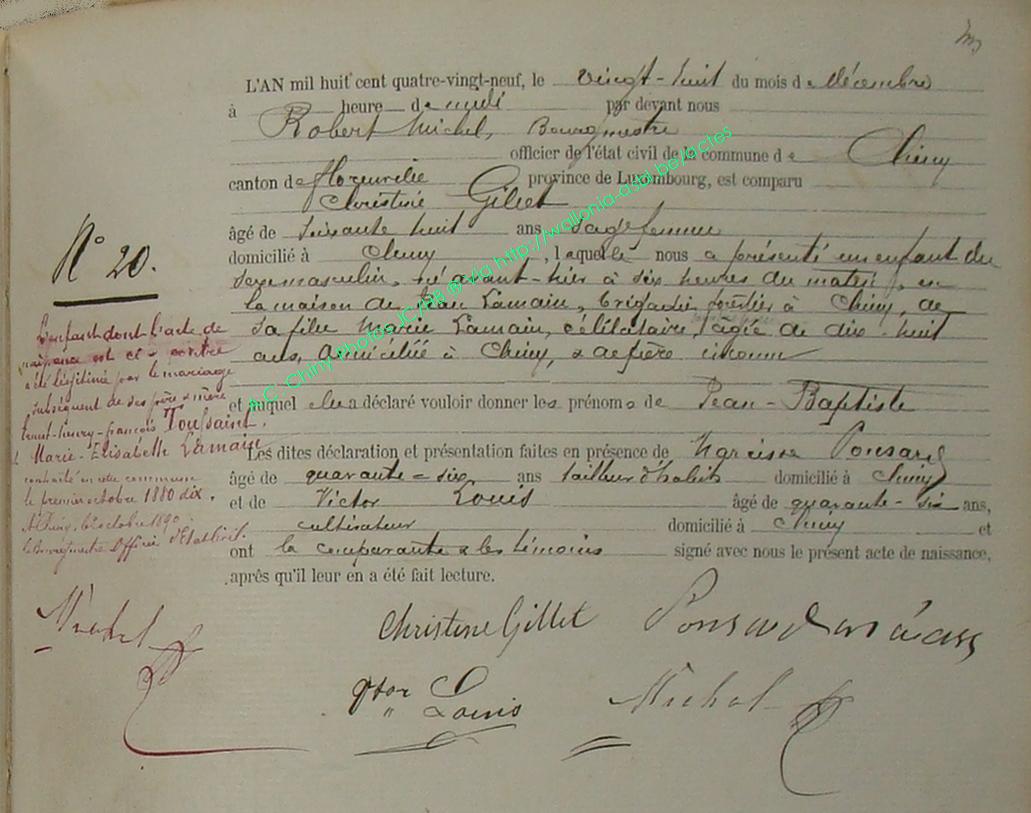 L'AN mil huit cent quatre-vingt-neuf, le vingt-huit du mois de décembre
à heure de midi par devant nous
Robert Michel, Bourgmestre
officier de l'état civil de la commune de Chiny
canton de Florenville province de Luxembourg, est comparu
Christine Gillet
âgé de soixante huit ans sage femme
domicilié à Chiny, laquelle nous a présenté un enfant du
sexe masculin, né avant-hier à six heures du matin, en
la maison de Jean Lamain, brigadier forestier à Chiny, de
sa fille Marie Lamain, célibataire, âgée de dix-huit
ans, domiciliée à Chiny, & de père inconnu
et auquel elle a déclaré vouloir donner les prénoms de Jean-Baptiste
Les dites déclaration et présentation faites en présence de Ponsard
âgé de quarante-six ans tailleur d'habits domicilié à Chiny
et de Victor Louis âgé de quarante-six ans,
cultivateur domicilié à Chiny et
ont la comparante & les témoins signé avec nous le présent acte de naissance,
après qu'il leur en a été fait lecture.
N° 20.
L'enfant dont l'acte de
naissance est ci-contre
a été légitimé par le mariage
subséquent de ses père & mère
Ernest-Henry-François Toussaint
& Marie-Elisabeth Lamain
contracté en cette commune
le premier octobre 1880 dix.
A Chiny, le octobre 1890
le Bourgmestre Officier d'Etat Civil.
Michel
Christine Gillet Ponsard
Louis Michel
A.C. Chiny Photos JC/RB ® via http://wallonia-asbl.be/actes